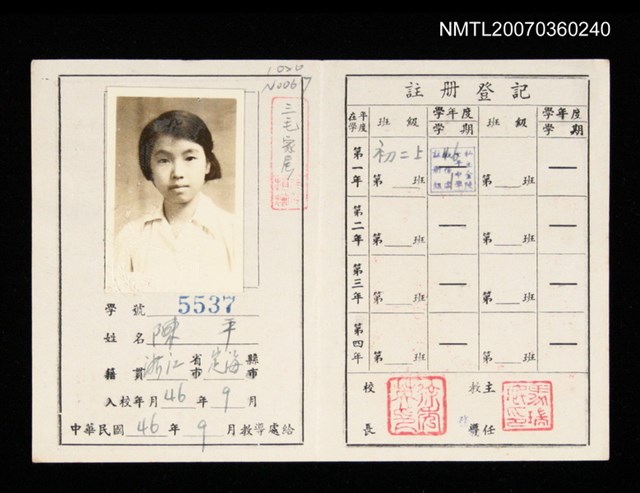 NMTL20070360240
三毛家居
學號 5537
姓名 陳平
籍貫 浙江 省市 定海 縣市
入校年月 46 年 9 月
中華民國 46 年 9 月教導處給
註冊登記
在學年度 班級 學年度學期 班級 學年度學期
第一年 初二上 第___班
第二年 第___班 第___班
第三年 第___班 第___班
第四年 第___班 第___班
校長 教導主任